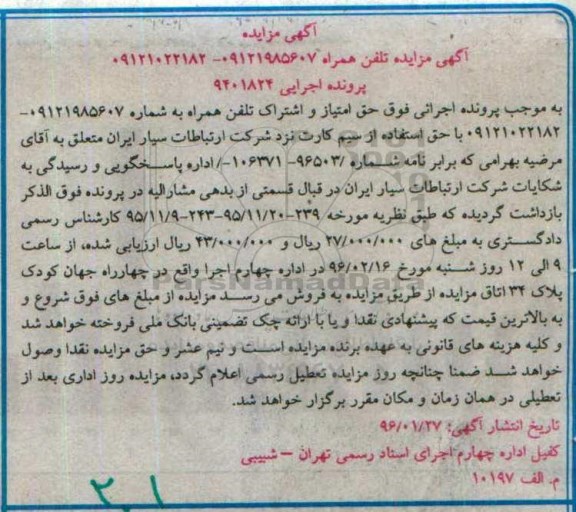 آگهی مزایده
آگهی مزایده تلفن همراه ۰۹۱۲۱۹۸۵۶۰۷- ۰۹۱۲۱۰۲۲۱۸۲
پرونده اجرایی ۹۴۰۱۸۲۴
به موجب پرونده اجرائی فوق حق امتیاز و اشتراک تلفن همراه به شماره ۰۹۱۲۱۹۸۵۶۰۷-
۰۹۱۲۱۰۲۲۱۸۲ با حق استفاده از سیم کارت نزد شرکت ارتباطات سیار ایران متعلق به آقای
مرضیه بهرامی که برابر نامه شماره /۹۶۵۰۳- ۱۰۶۳۷۱-/اداره پاسخگویی و رسیدگی به
شکایات شرکت ارتباطات سیار ایران در قبال قسمتی از بدهی مشارالیه در پرونده فوق الذکر
بازداشت گردیده که طبق نظریه مورخه ۲۳۹-۹۵/۱۱/۲۰-۲۴۳-۹۵/۱۱/۹ کارشناس رسمی
دادگستری به مبلغ های ۲۷/۰۰۰/۰۰۰ ریال و ۴۳/۰۰۰/۰۰۰ ریال ارزیابی شده، از ساعت
۹ الی ۱۲ روز شنبه مورخ ۹۶/۰۲/۱۶ در اداره چهارم اجرا واقع در چهارراه جهان کودک
پلاک ۳۴ اتاق مزایده از طریق مزایده به فروش می رسد مزایده از مبلغ های فوق شروع و
به بالاترین قیمت که پیشنهادی نقدا و یا با ارائه چک تضمینی بانک ملی فروخته خواهد شد
و کلیه هزینه های قانونی به عهده برنده مزایده است و نیم عشر و حق مزایده نقدا وصول
خواهد شد ضمنا چنانچه روز مزایده تعطیل رسمی اعلام گردد، مزایده روز اداری بعد از
تعطیلی در همان زمان و مکان مقرر برگزار خواهد شد.
تاریخ انتشار آگهی: ۹۶/۰۱/۲۷
کفیل اداره چهارم اجرای اسناد رسمی تهران – شبیبی
م. الف ۱۰۱۹۷
ParsNamadData